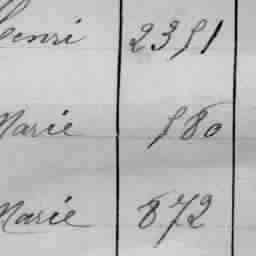 Henri 2351
Marie 580
Marie 872